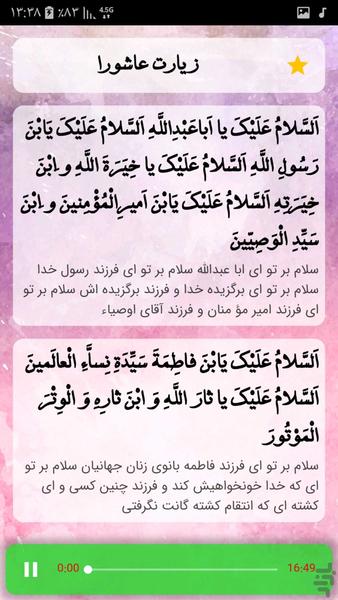 ۱۳:۳۸ ٪۸۳ 4.5G
زیارت عاشورا
اَلسَّلامُ عَلَیْکَ یا اَباعَبْدِاللَّهِ اَلسَّلامُ عَلَیْکَ یَابْنَ
رَسُولِ اللَّهِ اَلسَّلامُ عَلَیْکَ یا خِیَرَةَ اللَّهِ و َابْنَ
خِیَرَتِهِ اَلسَّلامُ عَلَیْکَ یَابْنَ اَمیرِالْمُؤْمِنینَ و َابْنَ
سَیِّدِ الْوَصِیّینَ
سلام بر تو ای ابا عبدالله سلام بر تو ای فرزند رسول خدا
سلام بر تو ای برگزیده خدا و فرزند برگزیده اش سلام بر تو
ای فرزند امیر مؤ منان و فرزند آقای اوصیاء
اَلسَّلامُ عَلَیْکَ یَابْنَ فاطِمَةَ سَیِّدَةِ نِساَّءِ الْعالَمینَ
اَلسَّلامُ عَلَیْکَ یا ثارَ اللَّهِ وَ ابْنَ ثارِهِ وَ الْوِتْرَ
الْمَوْتُورَ
سلام بر تو ای فرزند فاطمه بانوی زنان جهانیان سلام بر تو
ای که خدا خونخواهیش کند و فرزند چنین کسی و ای
کشته ای که انتقام کشته گانت نگرفتی
0:00 16:49
بازار